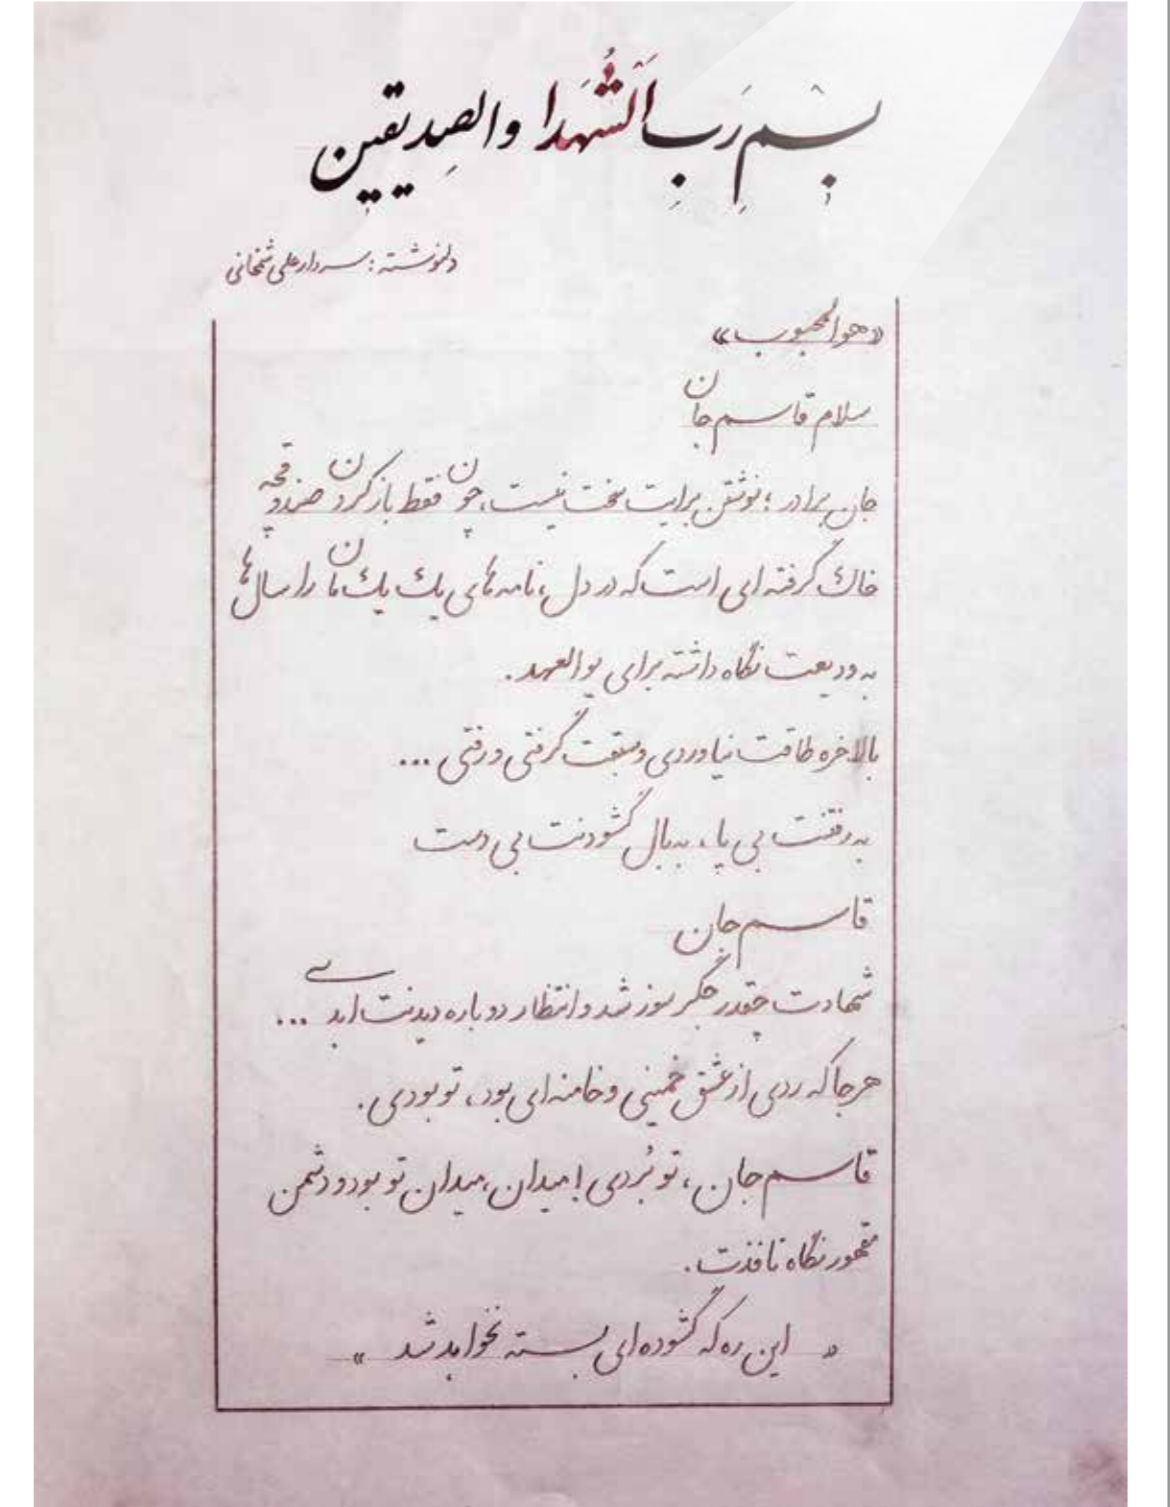 بسم رب الشهدا والصدیقین
دلنوشته: سردار علی شمخانی
«هوالمحبوب»
سلام قاسم جان
جان برادر؛ نوشتن برایت سخت نیست، چون فقط باز کردن صندوقچه
خاک گرفته ای است که در دل، نامه های یک یک مان را سال ها
به ودیعت نگاه داشته برای یوم العهد.
بالاخره طاقت نیاوردی و سبقت گرفتی و رفتی ...
به رفتنت بی پا، به بال گشودنت بی دست
قاسم جان
شهادت چقدر جگر سوز شد و انتظار دوباره دیدنت ابدی ...
هرجا که ردی از عشق خمینی و خامنه ای بود، تو بودی.
قاسم جان، تو بُردی! میدان، میدان تو بود و دشمن
مقهور نگاه نافذت.
« این ره که گشوده ای بسته نخواهد شد »